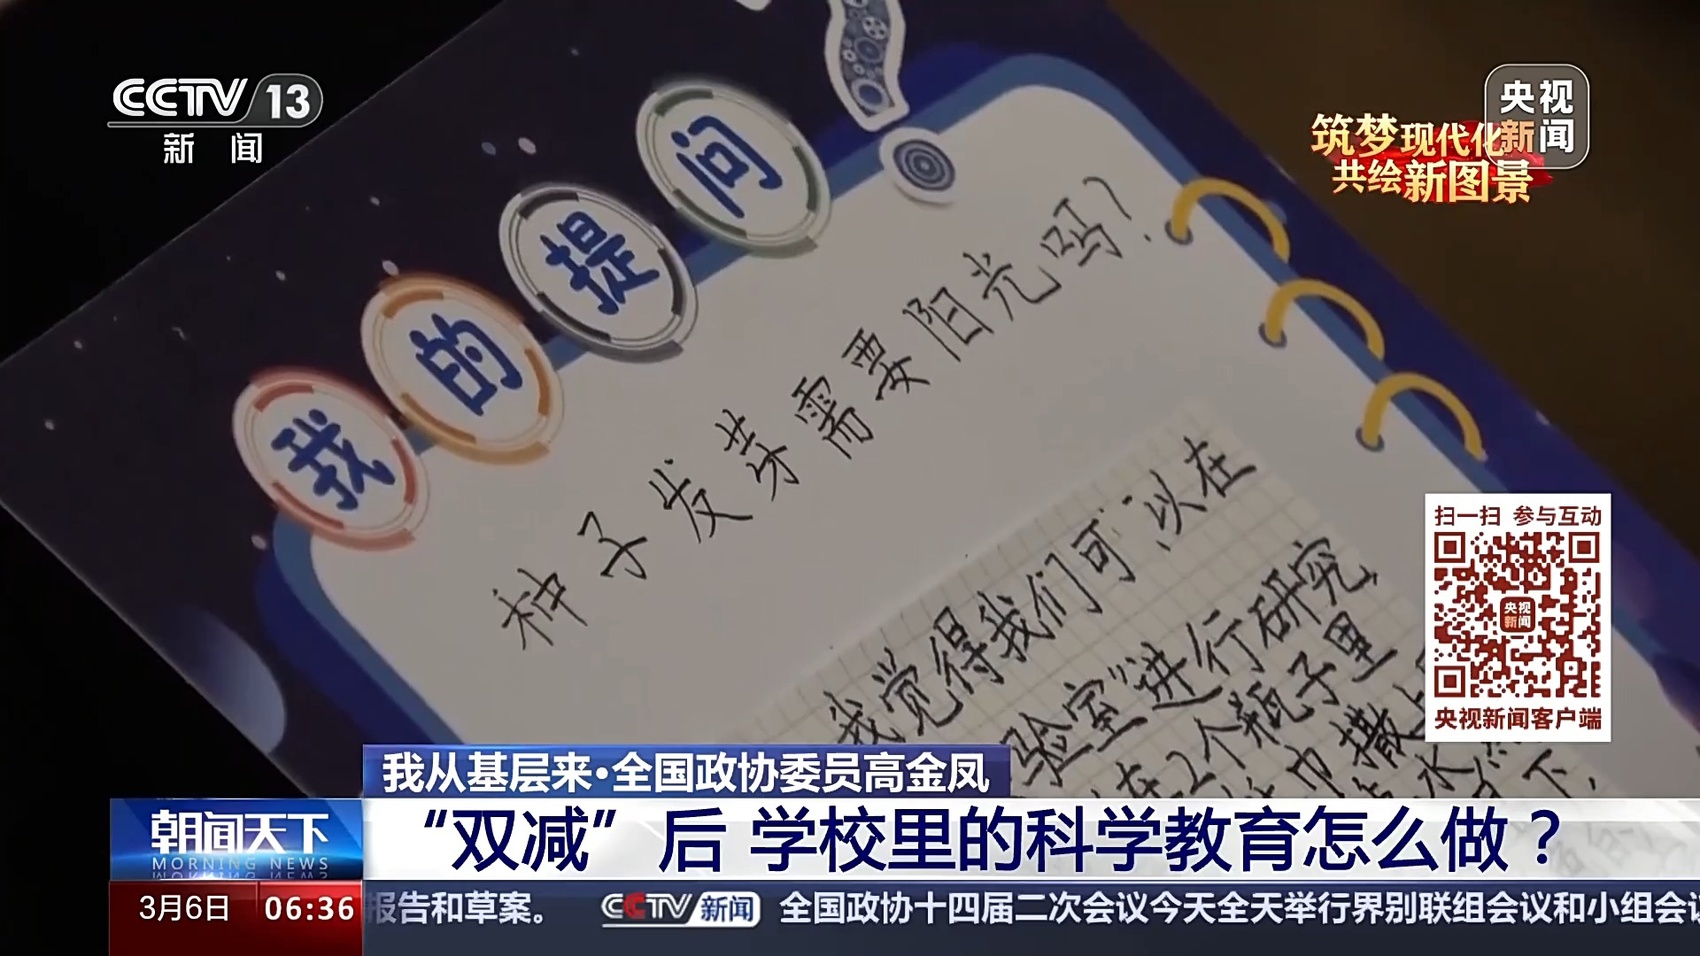 CCTV 13
新闻
央视
新闻
筑梦现代化
共绘新图景
我的提问
种子发芽需要阳光吗?
我觉得我们可以在
验室进行研究
在2个瓶子里
巾撒上
水
下,
扫一扫 参与互动
央视
新闻
央视新闻客户端
我从基层来·全国政协委员高金凤
“双减”后 学校里的科学教育怎么做？
朝闻天下
MORNING NEWS
3月6日 06:36
报告和草案。 CCTV新闻 全国政协十四届二次会议今天全天举行界别联组会议和小组会议